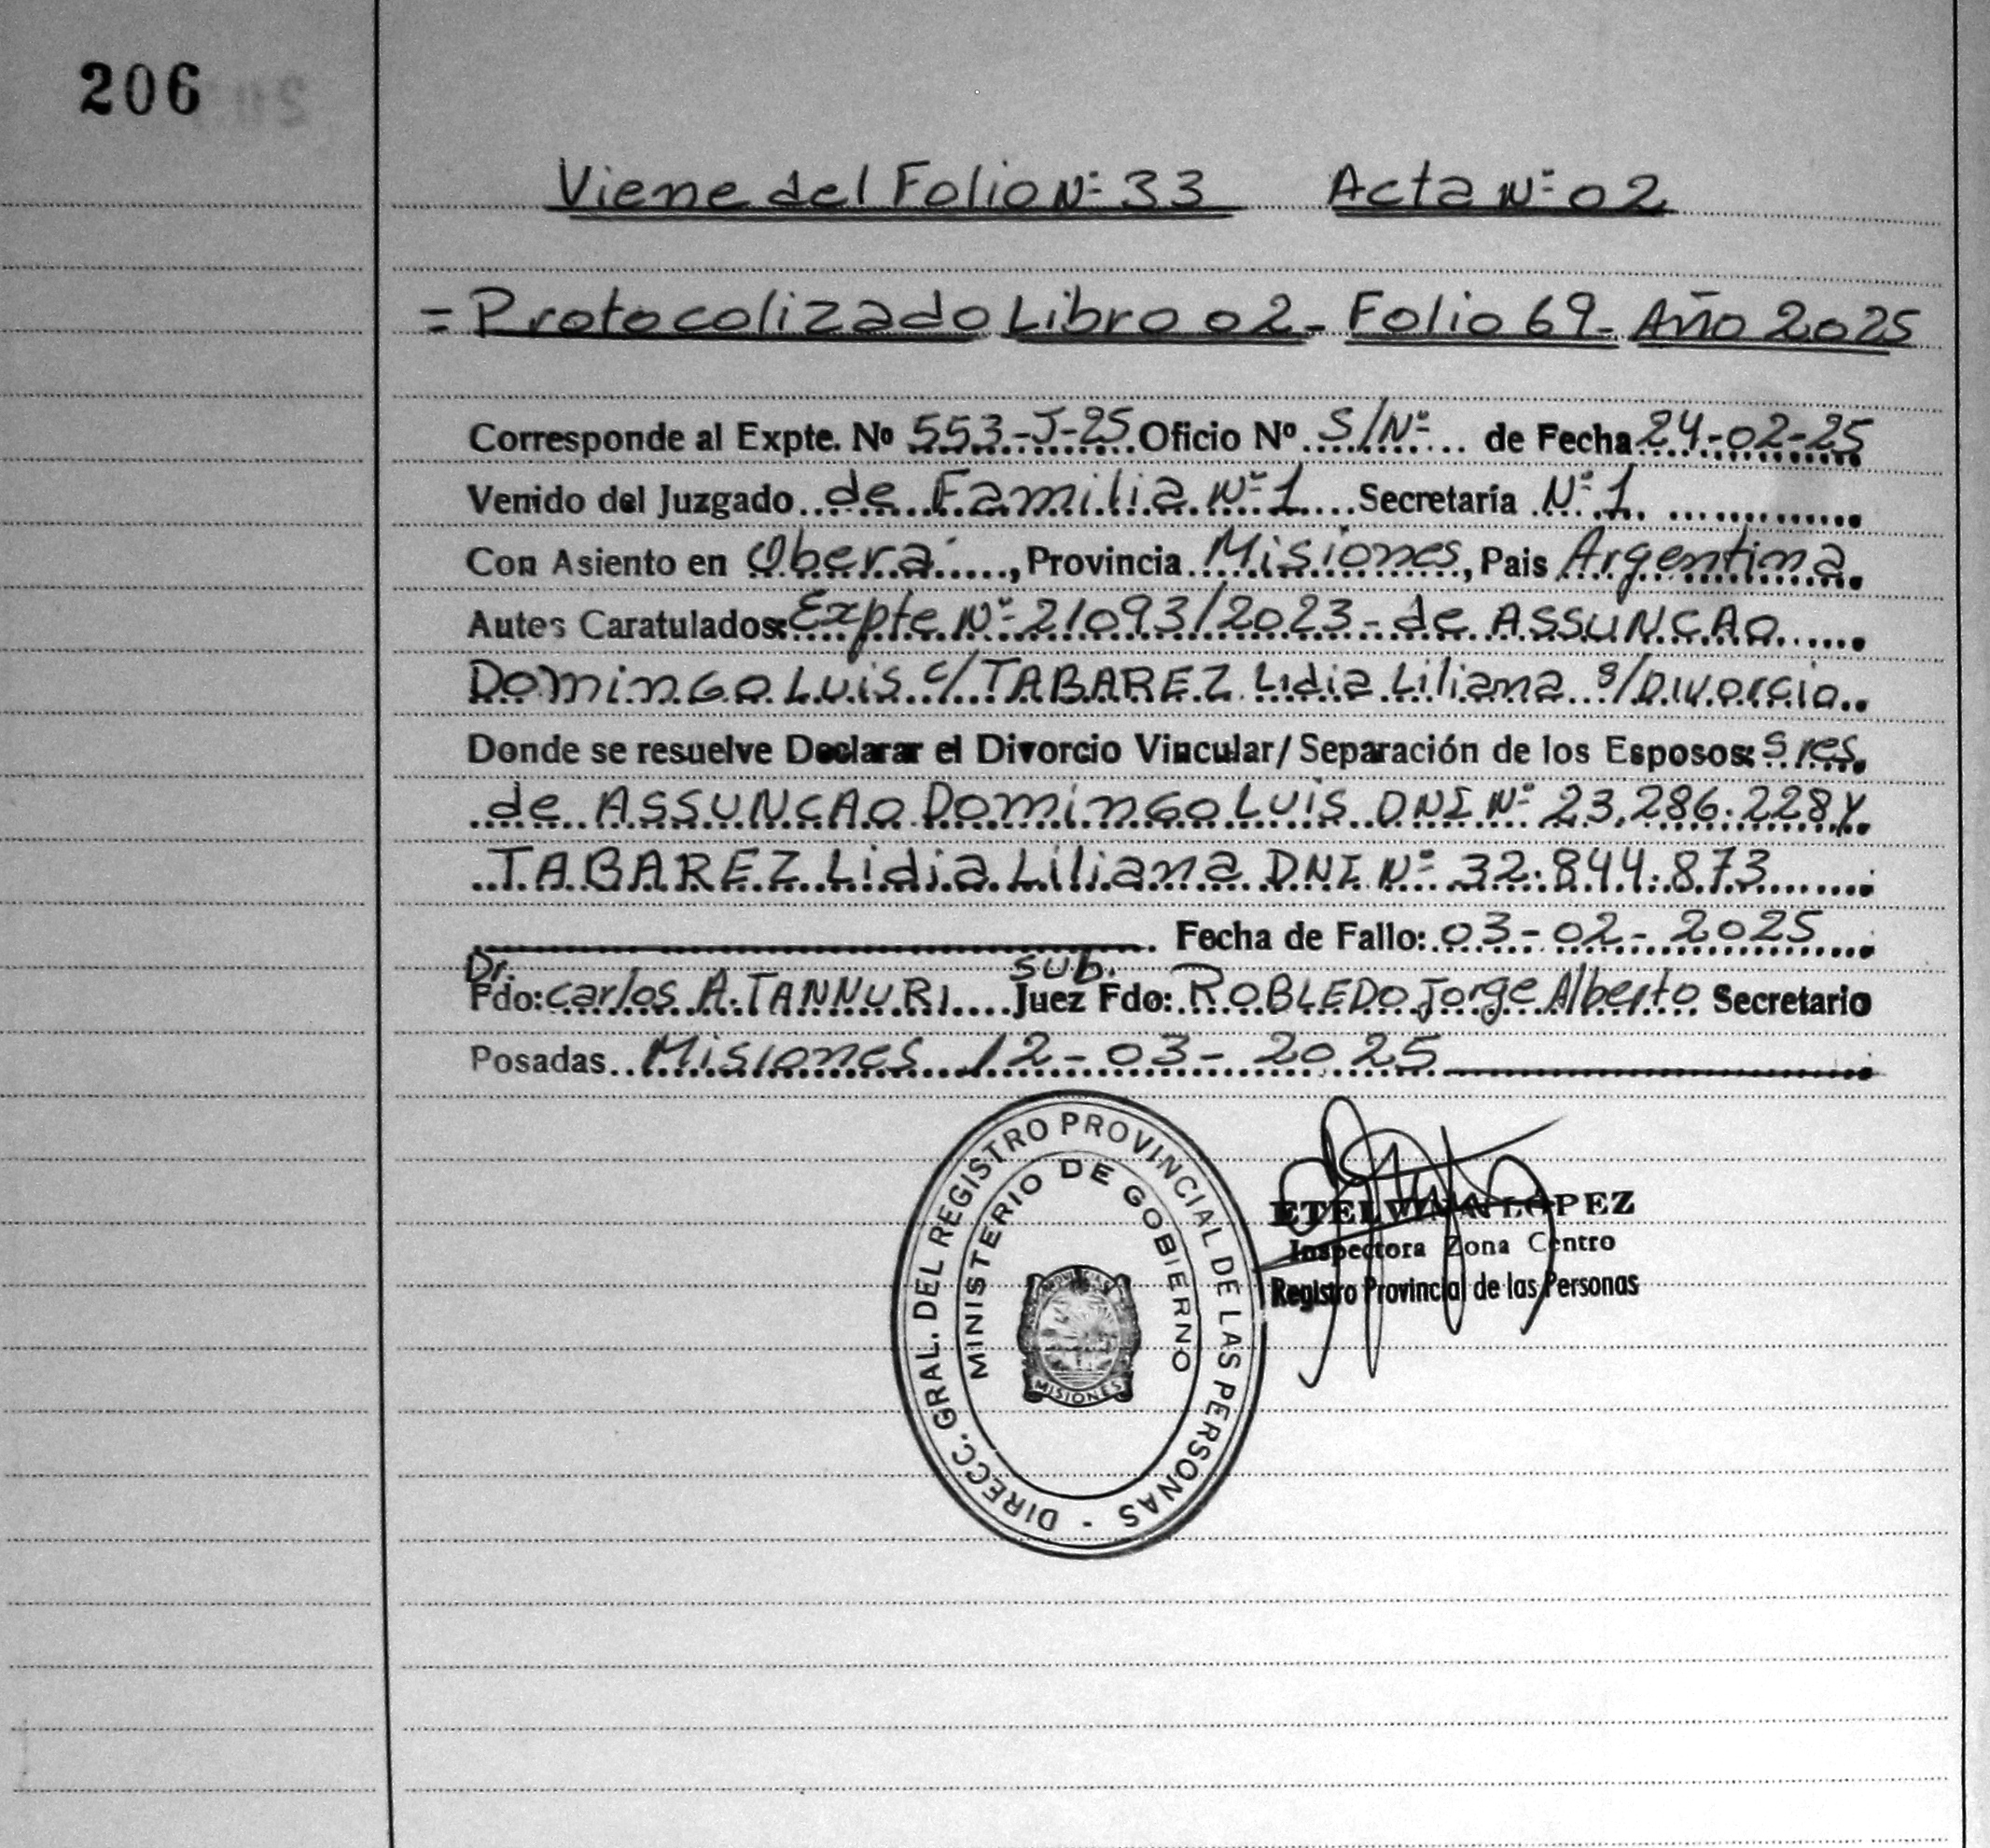 206
Viene del Folio Nº 33 Acta Nº 02
= Protocolizado Libro 02 - Folio 69 - Año 2025
Corresponde al Expte. Nº 553-J-25 Oficio Nº S/Nº de Fecha 24-02-25
Venido del Juzgado de Familia Nº 1 Secretaría Nº 1
Con Asiento en Oberá, Provincia Misiones, Pais Argentina.
Autes Caratulados: Expte Nº 21093/2023 - de ASSUNÇAO
DominGo Luis c/ TABAREZ Lidia Liliana s/ Divorcio
Donde se resuelve Declarar el Divorcio Vincular/Separación de los Esposos: Sres.
de ASSUNÇAO DominGo Luis DNI Nº 23.286.228 y
TABAREZ Lidia Liliana DNI Nº 32.844.873
Fecha de Fallo: 03-02-2025
Dr. sub.
Fdo: Carlos A. TANNURI Juez Fdo: ROBLEDO Jorge Alberto Secretario
Posadas Misiones 12-03-2025
DIRECC. GRAL. DEL REGISTRO PROVINCIAL DE LAS PERSONAS -
MINISTERIO DE GOBIERNO
MISIONES
ETELVINA LOPEZ
Inspectora Zona Centro
Registro Provincial de las Personas